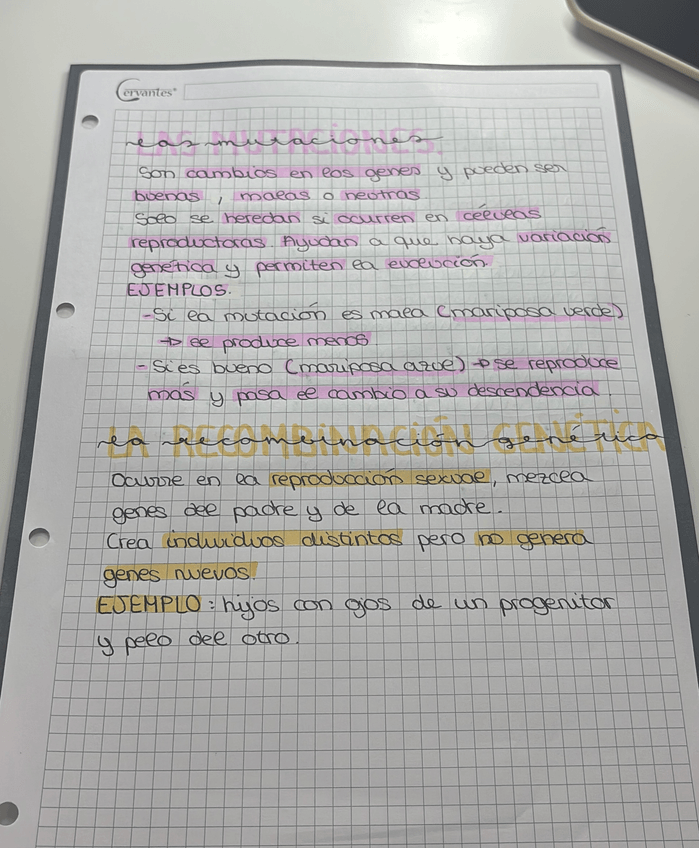 Cervantes
LAS MUTACIONES.
las mutaciones
Son cambios en los genes y pueden ser
buenas, malas o neutras
Solo se heredan si ocurren en células
reproductoras. Ayudan a que haya variación
genética y permiten la evolución.
EJEMPLOS.
-Si la mutación es mala (mariposa verde)
→ se produce menos
- Si es bueno (mariposa azul) → se reproduce
más y pasa el cambio a su descendencia.
LA RECOMBINACIÓN GENÉTICA
la recombinación genética
Ocurre en la reproducción sexual, mezcla
genes del padre y de la madre.
Crea individuos distintos pero no genera
genes nuevos.
EJEMPLO: hijos con ojos de un progenitor
y pelo del otro.